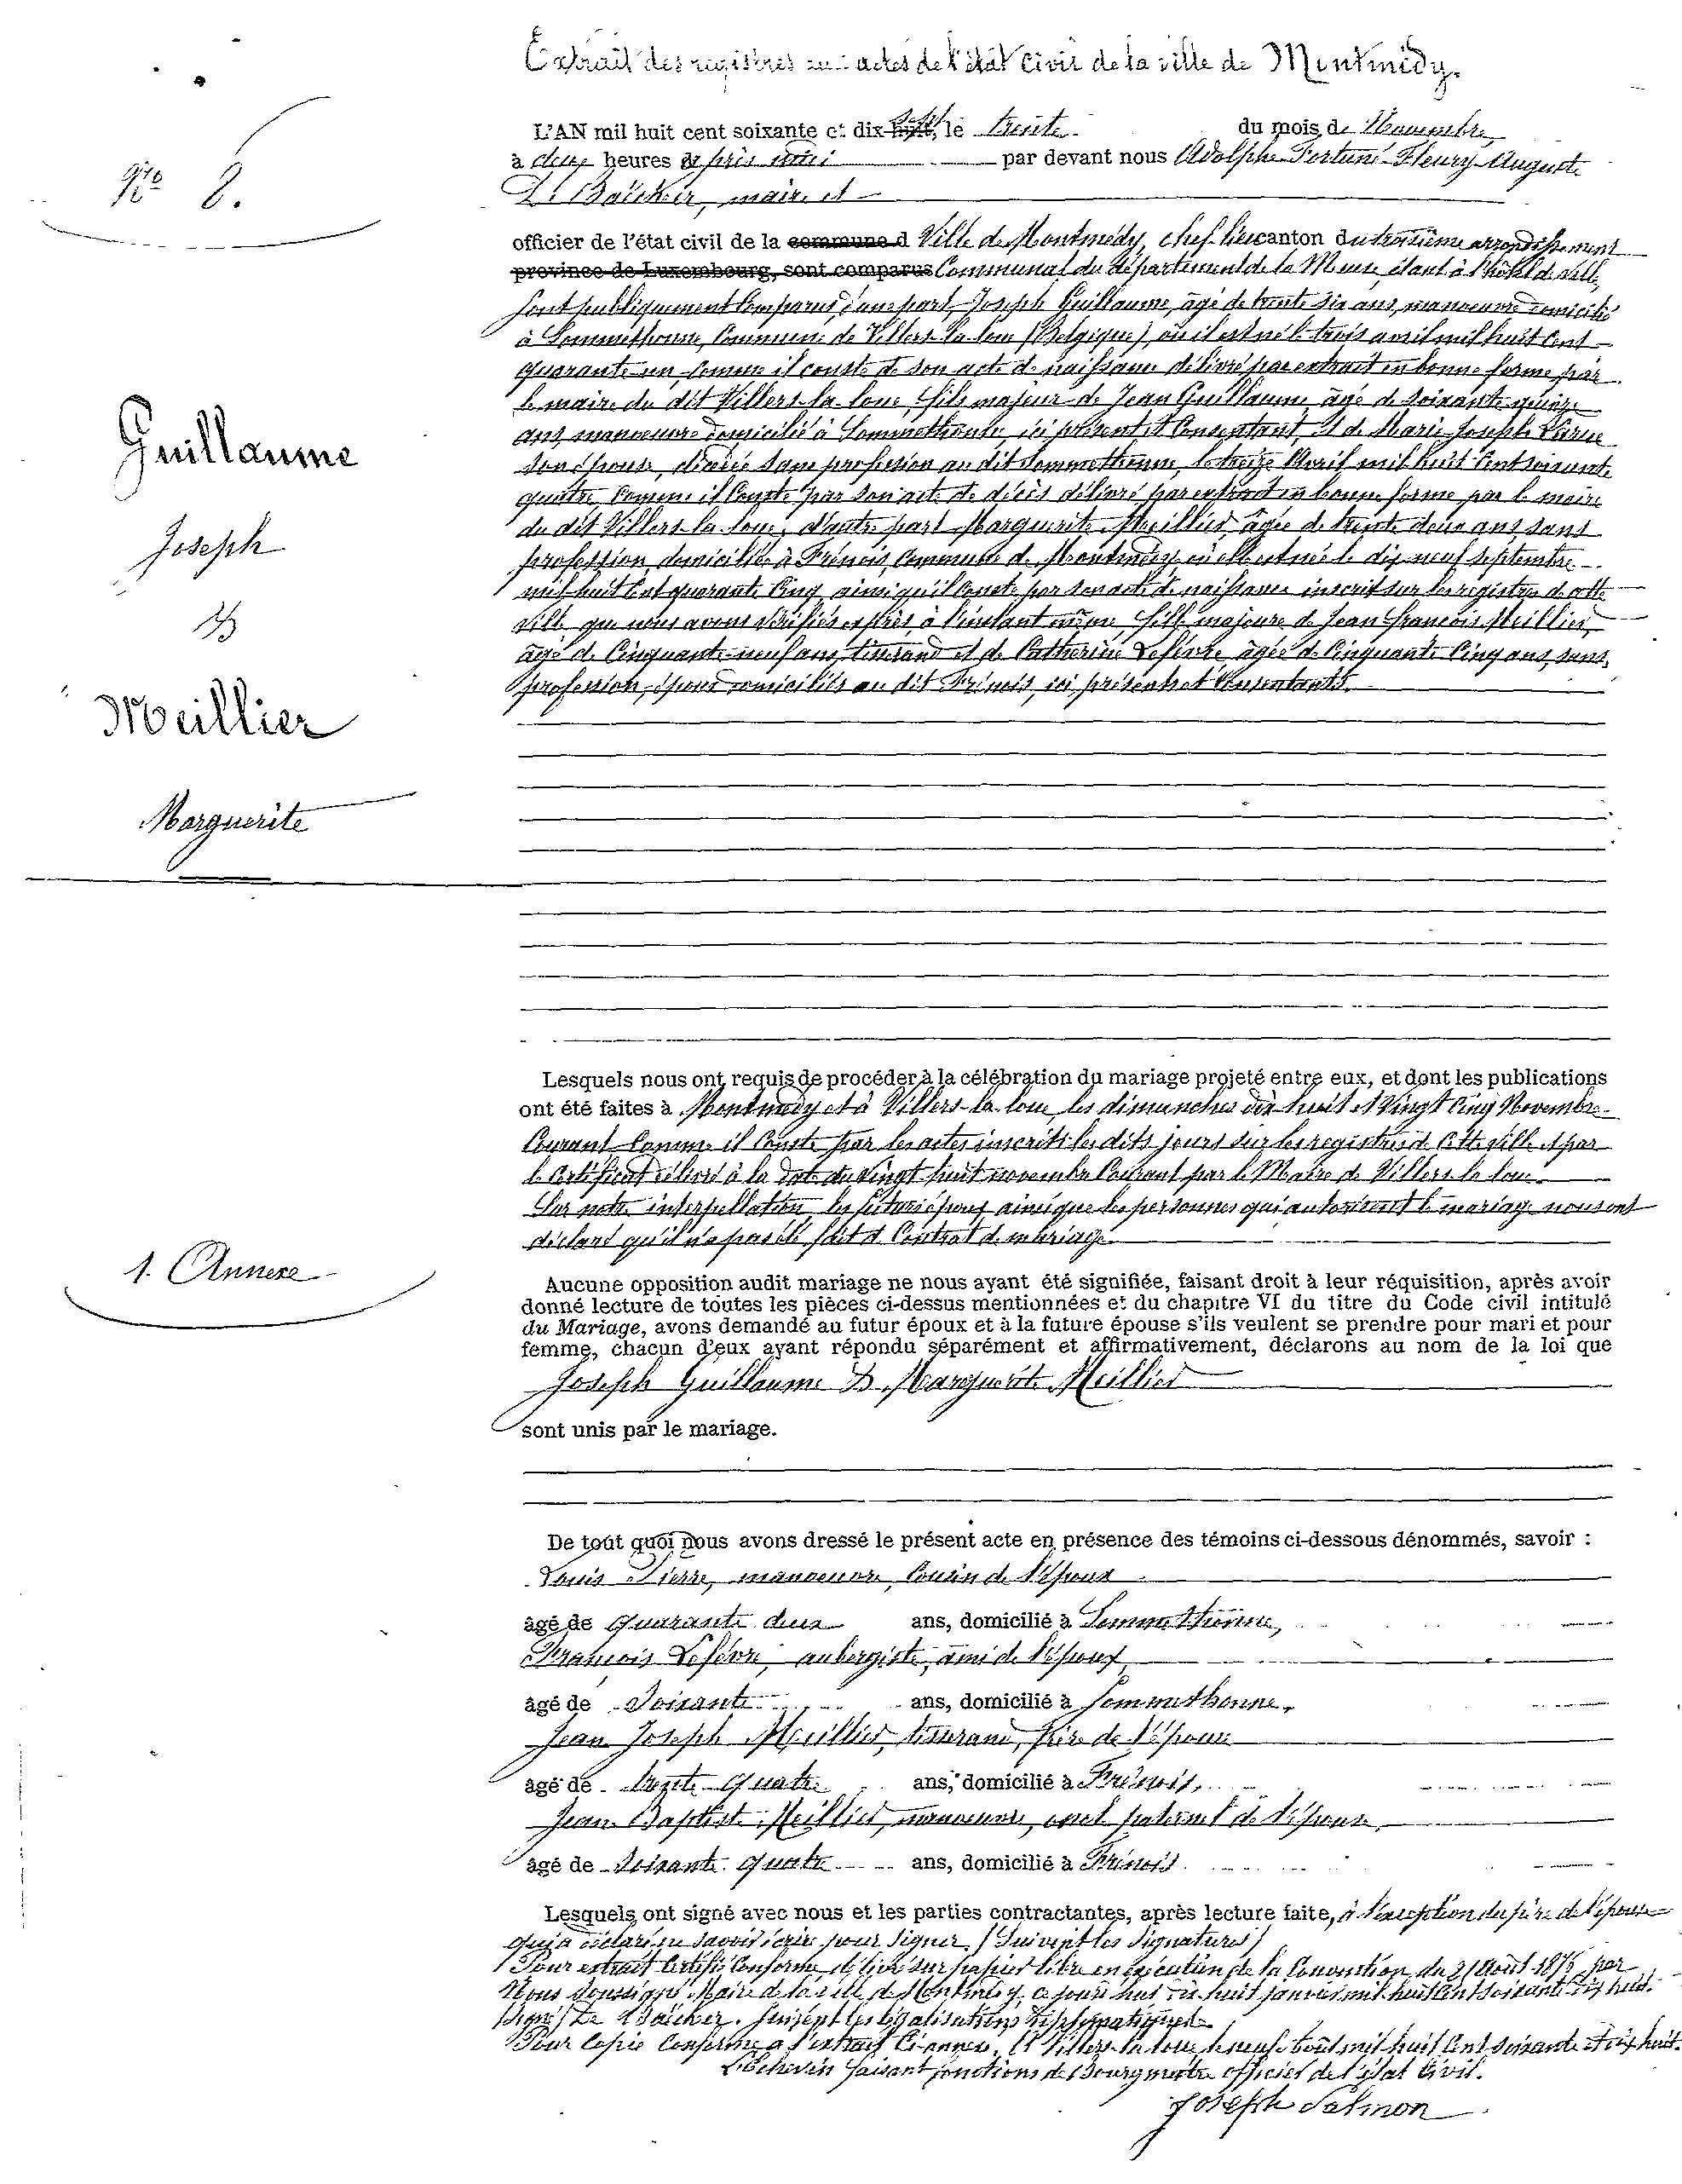 Extrait des registres aux actes de l'état civil de la ville de Montmédy.
N° 8.
L'AN mil huit cent soixante et dix huit, sept le trente du mois de Novembre
à deux heures après midi par devant nous Adolphe Fortuné Fleury Auguste
De Baëcker, maire et
officier de l'état civil de la commune d Ville de Montmédy, chef-lieu canton du troisième arrondissement
province de Luxembourg, sont comparus Communal du département de la Meuse, étant à l'hôtel de ville,
sont publiquement comparus, d'une part, Joseph Guillaume, âgé de trente six ans, manoeuvre domicilié
à Sommethonne, commune de Villers-la-loue (Belgique), où il est né le trois avril mil huit cent
quarante-un, comme il conste de son acte de naissance délivré par extrait en bonne forme par
le maire du dit Villers-la-loue, fils majeur de Jean Guillaume, âgé de soixante-quinze
ans, manoeuvre domicilié à Sommethonne, ici présent et consentant, et de Marie Joseph
son épouse, décédée sans profession au dit Sommethonne, le treize Avril mil huit cent soixante
quatre, comme il conste par son acte de décès délivré par extrait en bonne forme par le maire
du dit Villers-la-loue, d'autre part Marguerite Meillier, âgée de trente deux ans, sans
profession, domiciliée à Frénois, commune de Montmédy, où elle est née le dix neuf septembre
mil huit cent quarante cinq, ainsi qu'il conste par son acte de naissance inscrit sur les registres de cette
ville que nous avons vérifiés exprès à l'instant même, fille majeure de Jean François Meillier,
âgé de cinquante-neuf ans, tisserand et de Catherine Lefèvre âgée de cinquante cinq ans, sans
profession, époux domiciliés au dit Frénois, ici présents et consentants.
Guillaume
Joseph
&
Meillier
Marguerite
Lesquels nous ont requis de procéder à la célébration du mariage projeté entre eux, et dont les publications
ont été faites à Montmédy et à Villers-la-loue, les dimanches dix huit et vingt cinq Novembre
courant, comme il conste par les actes inscrits les dits jours sur les registres de cette ville et par
le certificat délivré à la date du vingt huit novembre courant par le Maire de Villers-la-loue.
Sur notre interpellation, les futurs époux, ainsi que les personnes qui autorisent le mariage nous ont
déclaré qu'il n'a pas été fait de contrat de mariage.
1. Annexe
Aucune opposition audit mariage ne nous ayant été signifiée, faisant droit à leur réquisition, après avoir
donné lecture de toutes les pièces ci-dessus mentionnées et du chapitre VI du titre du Code civil intitulé
du Mariage, avons demandé au futur époux et à la future épouse s'ils veulent se prendre pour mari et pour
femme, chacun d'eux ayant répondu séparément et affirmativement, déclarons au nom de la loi que
Joseph Guillaume & Marguerite Meillier
sont unis par le mariage.
De tout quoi nous avons dressé le présent acte en présence des témoins ci-dessous dénommés, savoir :
Louis Pierre, manoeuvre, cousin de l'époux
âgé de quarante deux ans, domicilié à Sommethonne,
François Lefèvre, aubergiste, ami de l'époux,
âgé de soixante ans, domicilié à Sommethonne,
Jean Joseph Meillier, tisserand, frère de l'épouse
âgé de trente quatre ans, domicilié à Frénois,
Jean Baptiste Meillier, manoeuvre, oncle paternel de l'épouse,
âgé de soixante quatre ans, domicilié à Frénois
Lesquels ont signé avec nous et les parties contractantes, après lecture faite, à l'exception du père de l'épouse
qui a déclaré ne savoir écrire pour signer. (Suivent les signatures)
Pour extrait certifié conforme, délivré sur papier libre en exécution de la Convention du 21 août 1876 par
Nous soussigné Maire de la ville de Montmédy, ce jourd'hui dix huit janvier mil huit cent soixante dix huit.
(signé) De Baëcker. Suivent les légalisations diplomatiques
Pour copie conforme à l'extrait ci-annexé. A Villers-la-loue, le neuf août mil huit cent soixante et dix huit.
L'échevin faisant fonctions de Bourgmestre officier de l'état civil.
Joseph Salmon